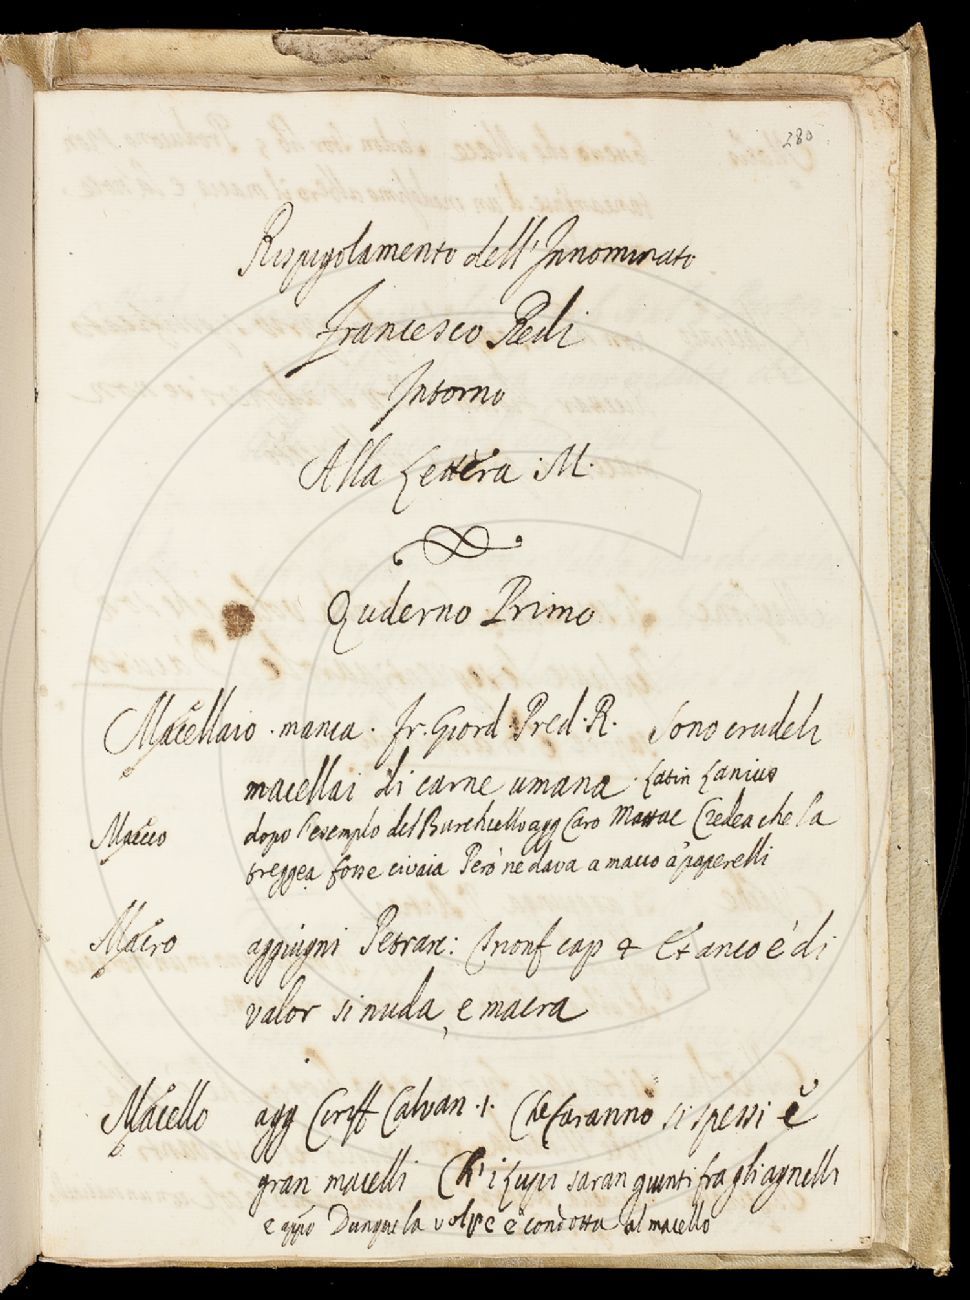 280
Rispigolamento dell'Innominato
Francesco Redi
Intorno
Alla Lettera M.
Quderno Primo
Macellaio . manca . fr. Giord. Pred. R. Sono crudeli
macellai di carne umana . Latin Lanius
Macco dopo l'esemplo del Burchiello agg Caro Mattac Credea che la
treggea fosse civaia Però ne dava a macco a' paperelli
Macro aggiugni Petrarc: Trionf cap 4 Et anco è di
valor si nuda, e macra
Macello agg Ciriff Calvan . 1 . Che faranno si spessi e
gran macelli Ch' i Lupi saran giunti fra gli agnelli
e appo Dunque la volpe è condotta al macello